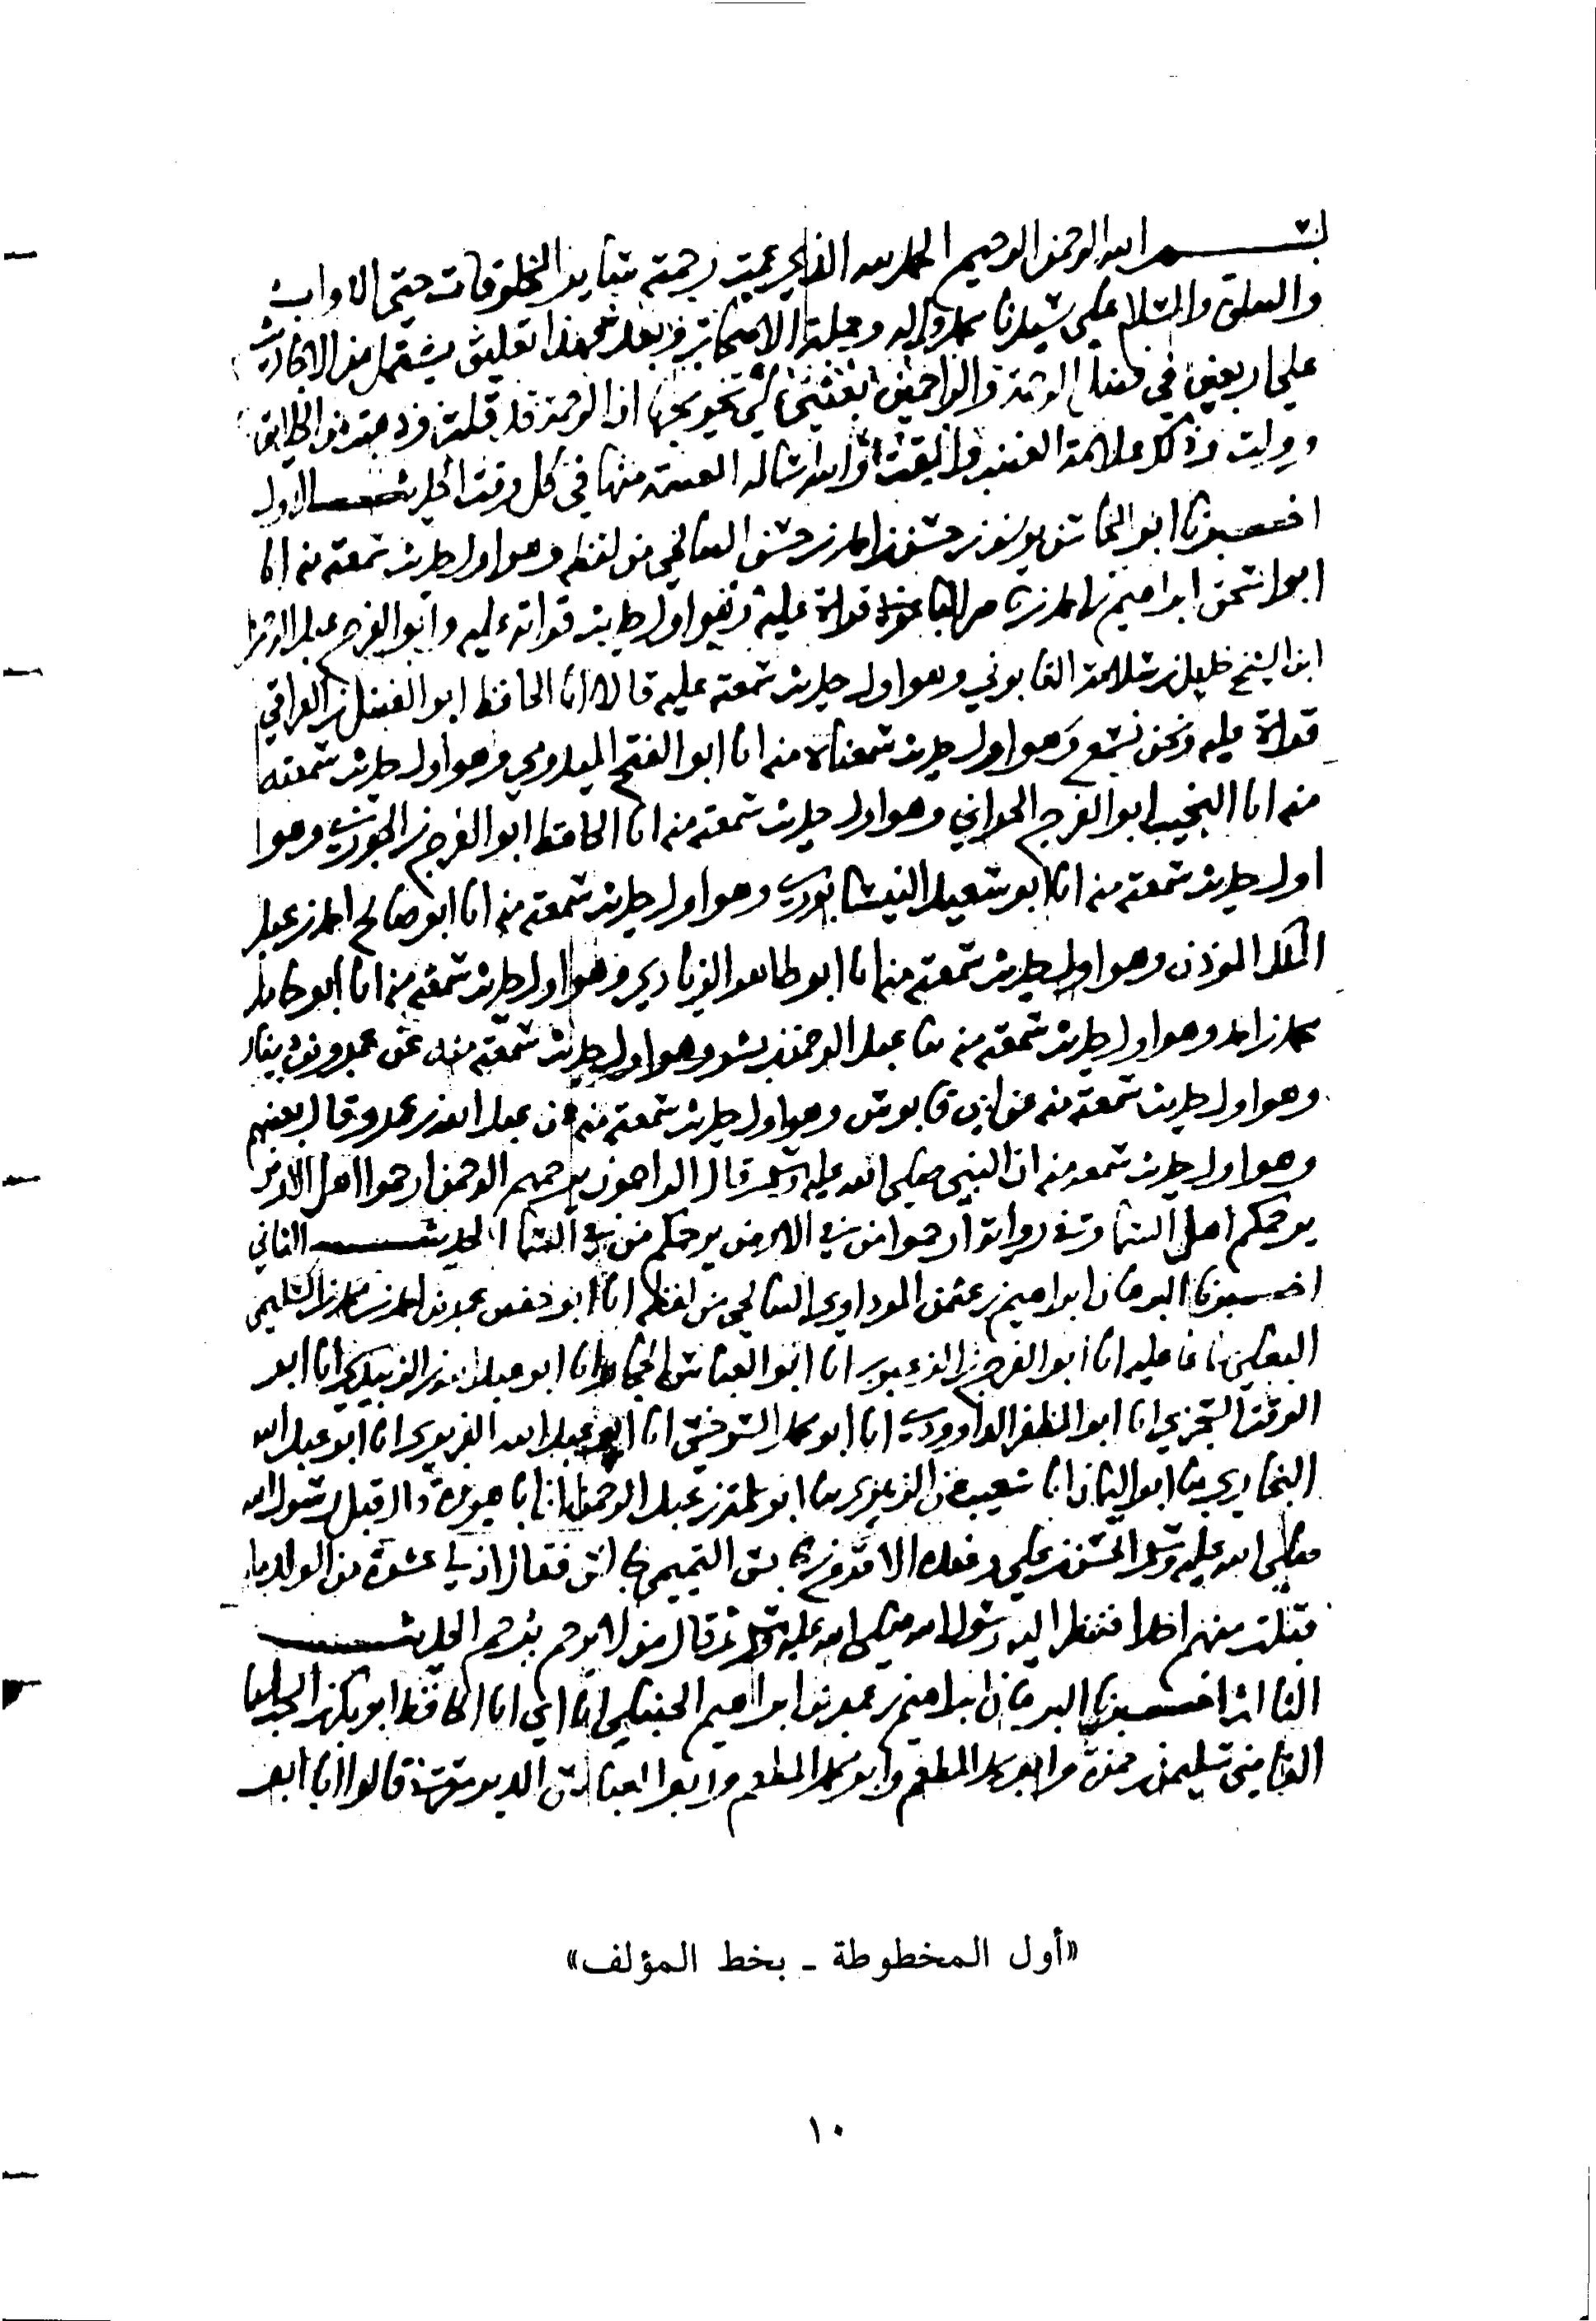 بسم الله الرحمن الرحيم الحمد لله الذي عمت رحمته سائر المخلوقات حتى الدواب
والصلاة والسلام على سيدنا محمد وآله وجملة الاصحاب وبعد فهذا تعليق يشتمل من الاحاديث
على اربعين في فضل الرحمة والراحمين بعثني على تخريجها ان الرحمة قد قلت من الخلائق
وولت وذلك علامة الغضب والله نساله العصمة منها في كل وقت الحديث الاول
اخبرنا ابو المحاسن يوسف بن حسن بن احمد بن حسن الصالحي من لفظه وهو اول حديث سمعته منه انا
ابو اسحق ابراهيم بن احمد قراة عليه وهو اول حديث قراته عليه وابو الفرج عبد الرحمن
ابن الشيخ خليل بن سلامة القابوني وهو اول حديث سمعته عليه قالا انا الحافظ ابو الفضل بن العراقي
قراة عليه ونحن نسمع وهو اول حديث سمعناه منه انا ابو الفتح الميدومي وهو اول حديث سمعته
منه انا النجيب ابو الفرج الحراني وهو اول حديث سمعته منه انا الحافظ ابو الفرج بن الجوزي وهو
اول حديث سمعته منه انا ابو سعيد النيسابوري وهو اول حديث سمعته منه انا ابو صالح احمد بن عبد
الملك الموذن وهو اول حديث سمعته منه انا ابو طاهر الزيادي وهو اول حديث سمعته منه انا ابو حامد
محمد بن احمد وهو اول حديث سمعته منه ثنا عبد الرحمن بن بشر وهو اول حديث سمعته منه عن عمرو بن دينار
وهو اول حديث سمعته منه عن ابي قابوس وهو اول حديث سمعته منه عن عبد الله بن عمرو وقال بعضهم
وهو اول حديث سمعه منه ان النبي صلى الله عليه وسلم قال الراحمون يرحمهم الرحمن ارحموا اهل الارض
يرحمكم اهل السما وفي رواية ارحموا من في الارض يرحمكم من في السما الحديث الثاني
اخبرنا البرهان ابراهيم بن عثمن المرداوي الصالحي من لفظه انا ابو حفص عمر بن احمد السليمي
البعلي سماعا عليه انا ابو الفرج بن الزعبوب انا ابو العباس الحجار انا ابو عبد الله بن الزبيدي انا ابو
الوقت السجزي انا ابو المظفر الداوودي انا ابو محمد السرخسي انا ابو عبد الله الفربري انا ابو عبد الله
البخاري ثنا ابو اليمان انا شعيب عن الزهري ثنا ابو سلمة بن عبد الرحمن ان ابا هريرة قال قبل رسول الله
صلى الله عليه وسلم الحسن بن علي وعنده الاقرع بن حابس التميمي جالس فقال ان لي عشرة من الولد ما
قبلت منهم احدا فنظر اليه رسول الله صلى الله عليه وسلم ثم قال من لا يرحم لا يرحم الحديث
الثالث اخبرنا البرهان ابراهيم بن عمر بن ابراهيم الحنبلي انا ابي انا الحافظ ابو بكر بن المحب انا
القاضي سليمن بن حمزة وابو محمد المطعم وابو العباس الدير مقرني قالوا انا ابو
«أول المخطوطة - بخط المؤلف»
١٠